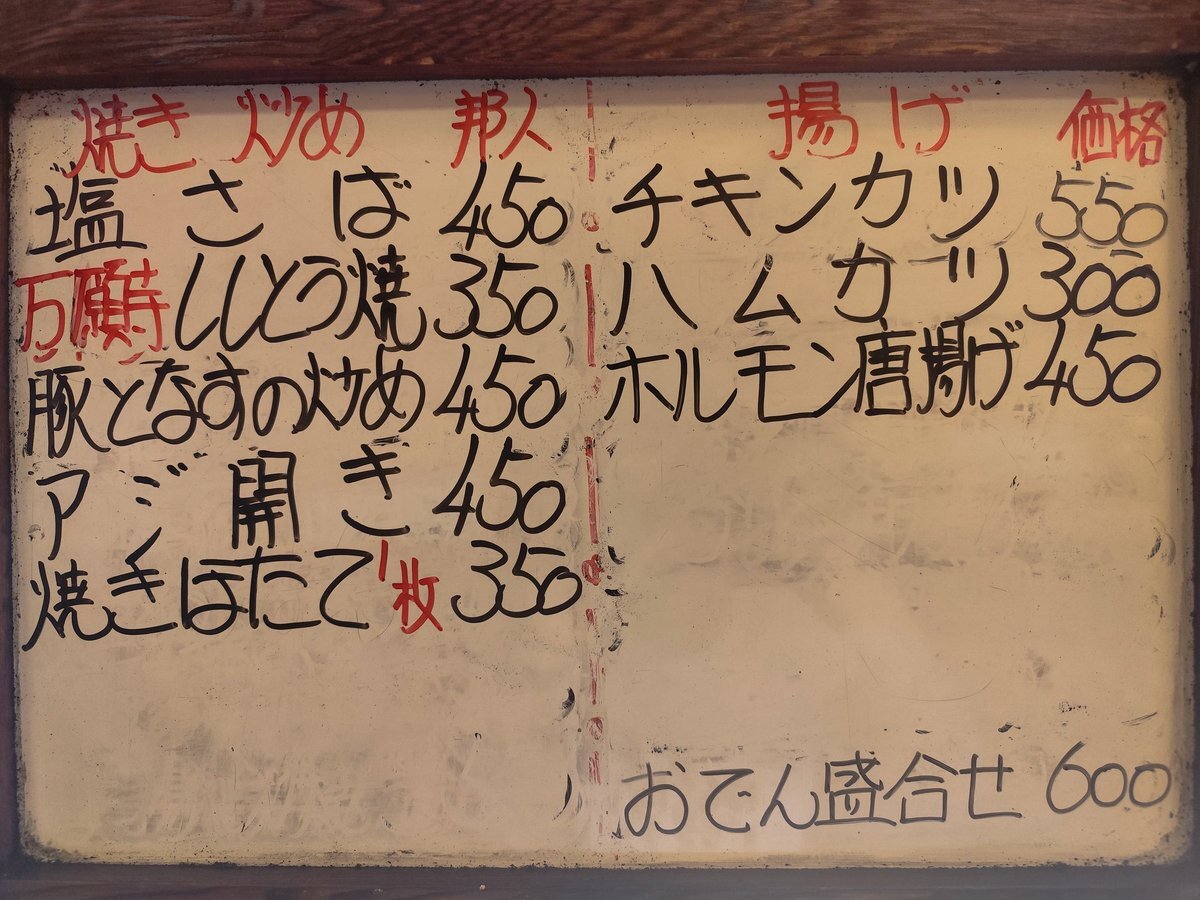 焼き 炒め 邦人
塩さば 450
万願寺ししとう焼 350
豚となすの炒め 450
アジ開き 450
焼きほたて1枚 350
揚げ 価格
チキンカツ 550
ハムカツ 300
ホルモン唐揚げ 450
おでん盛合せ 600